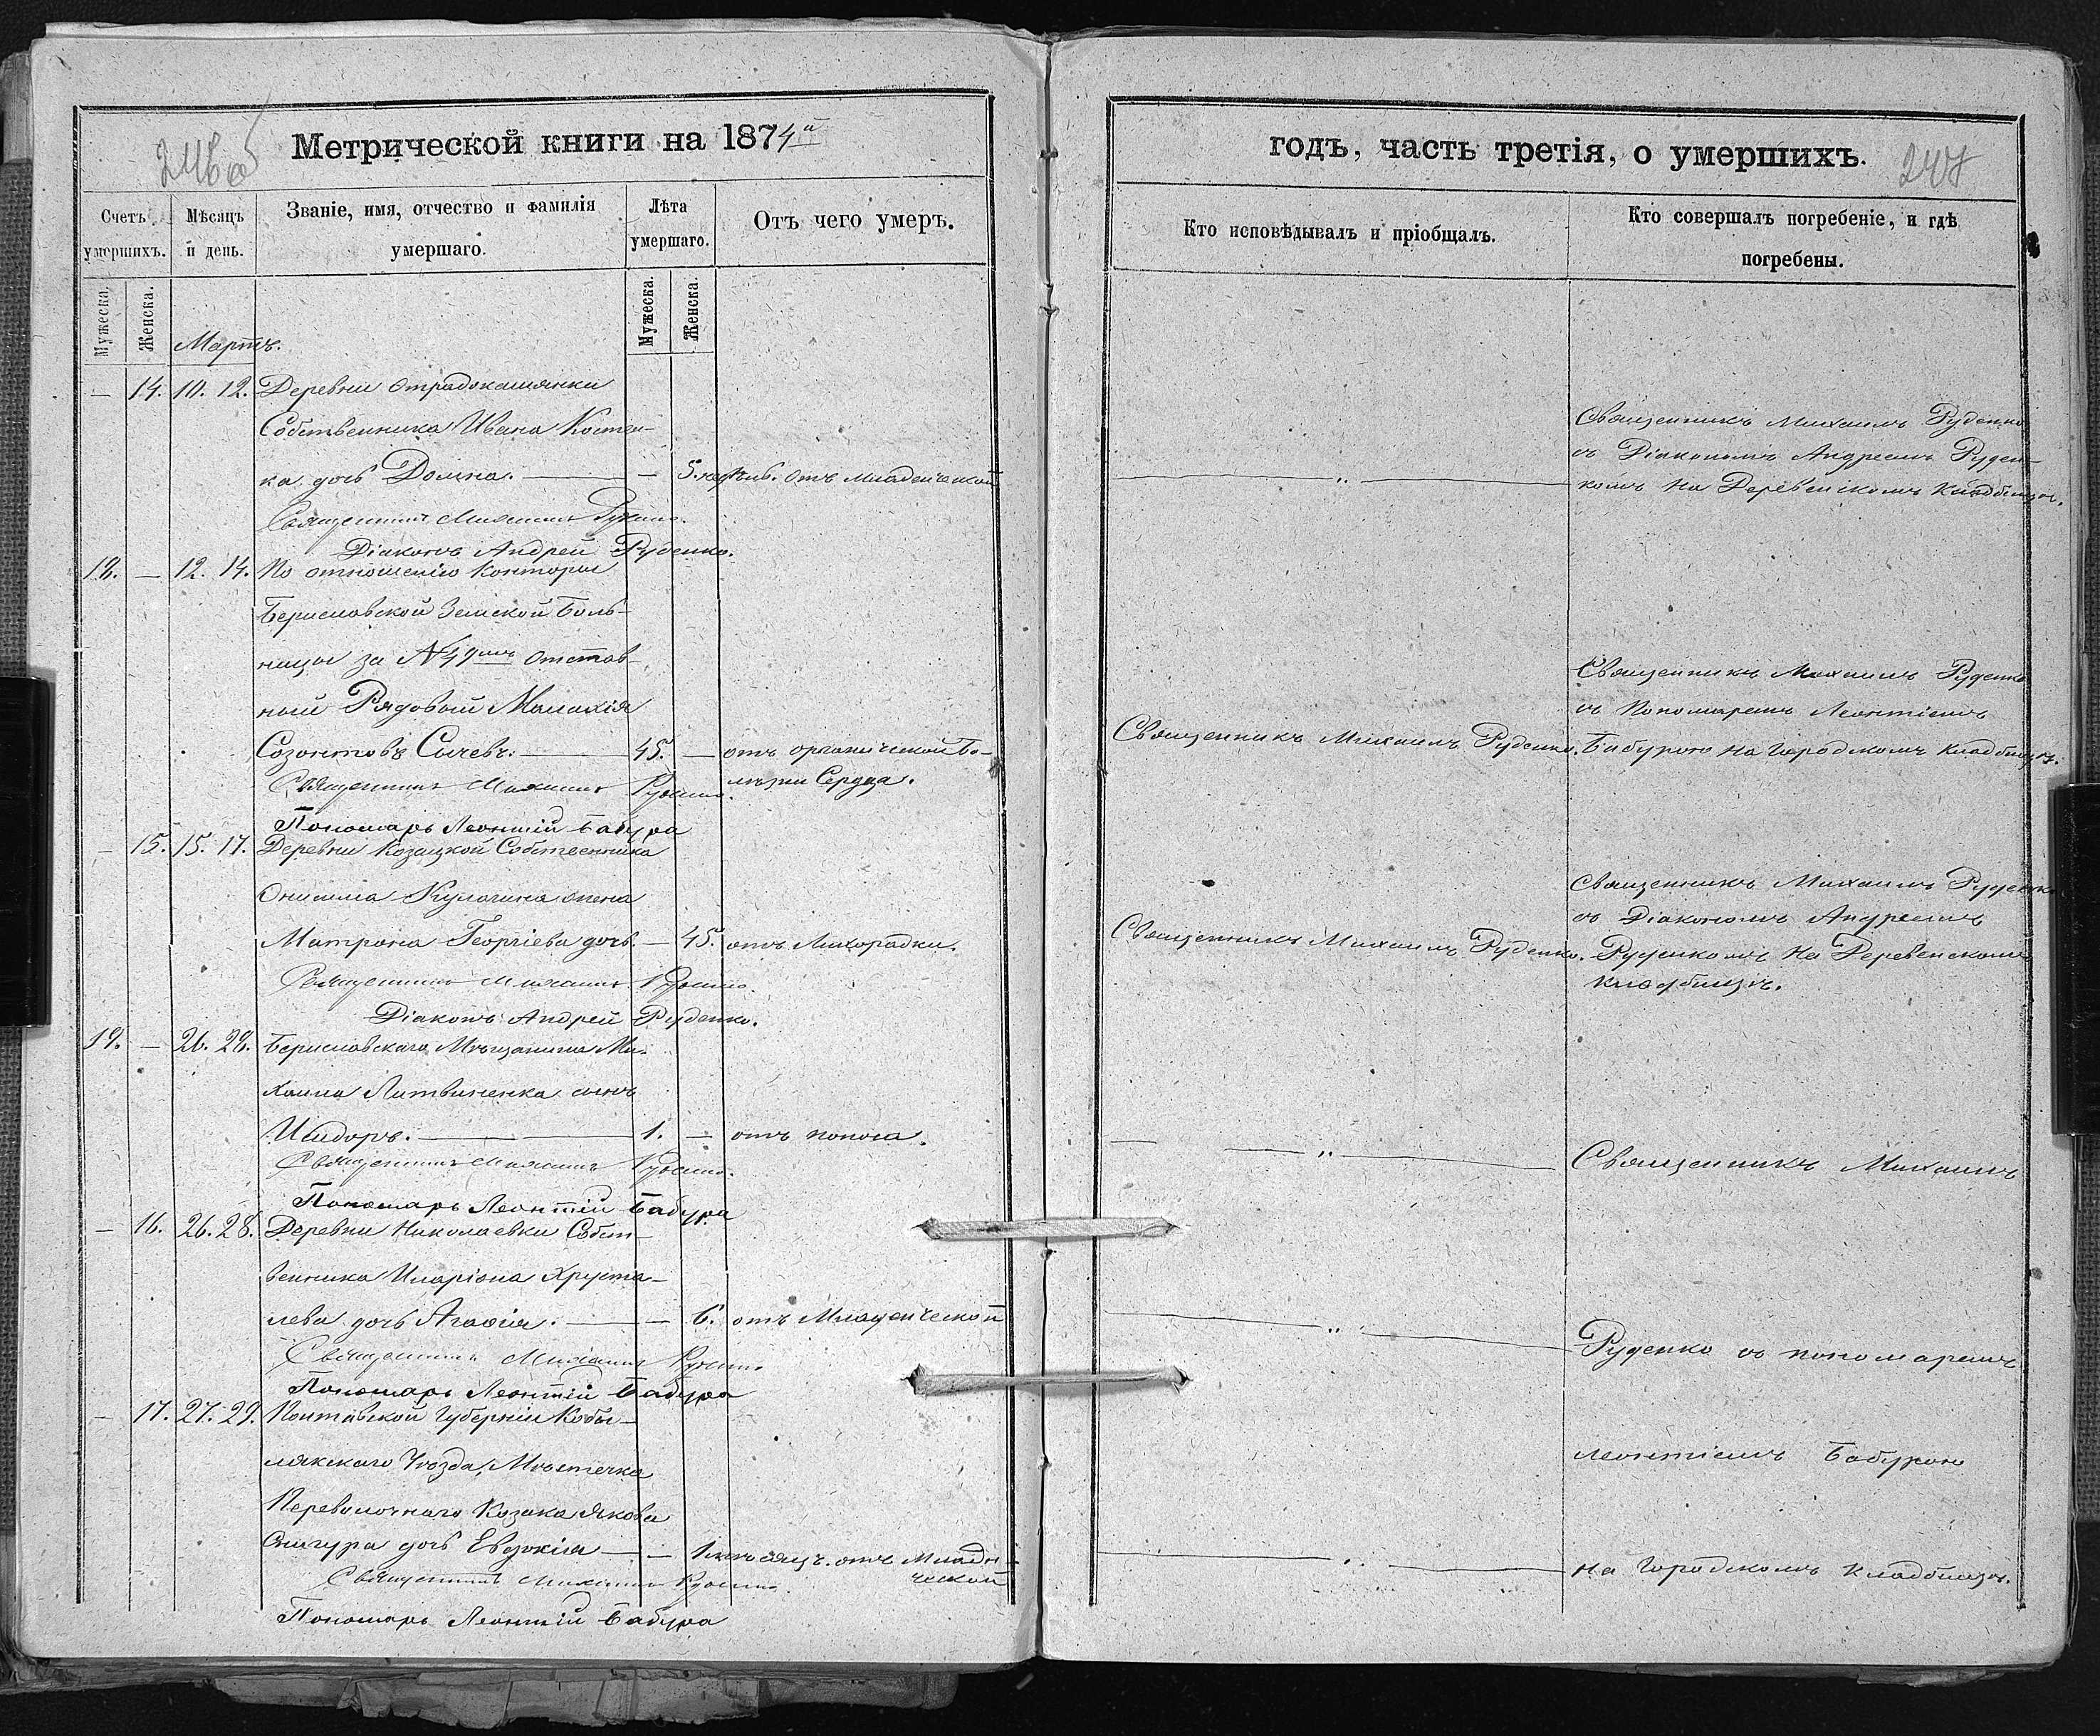 246 об
Метрической книги на 1874й
Счетъ умершихъ.
Мѣсяцъ и день.
Званіе, имя, отчество и фамилія умершаго.
Лѣта умершаго.
Отъ чего умеръ.
Мужеска.
Женска.
Мартъ.
Мужеска.
Женска.
— 14. 10. 12. Деревни Отрадокаменки
Собственника Ивана Костен-
ка дочь Домна. — 5. недѣль. отъ младенческой
Священникъ Михаилъ Руденко.
Діаконъ Андрей Руденко.
18. — 12. 14. По отношенію Конторы
Бериславской Земской Боль-
ницы за № отстав-
ный Рядовый Малахія
Созонтовъ Сычевъ. 45. — отъ органической бо-
лѣзни Сердца.
Священникъ Михаилъ Руденко.
Пономарь Леонтій Бабура
— 15. 15. 17. Деревни Козацкой Собственника
Онисима Кулагина жена
Матрона Георгіева дочь. — 45. отъ Лихорадки.
Священникъ Михаилъ Руденко.
Діаконъ Андрей Руденко.
19. — 26. 28. Бериславскаго Мѣщанина Ми-
хаила Литвиненка сынъ
Исидоръ. 1. — отъ поноса.
Священникъ Михаилъ Руденко.
Пономарь Леонтій Бабура
— 16. 26. 28. Деревни Николаевки Собст-
венника Иларіона Хруста-
лева дочь Агафія. — 6. отъ Младенческой
Священникъ Михаилъ Руденко
Пономарь Леонтій Бабура
— 17. 27. 29. Полтавской Губерніи Кобы-
лякскаго Уѣзда, Мѣстечка
Переволочнаго Козака Якова
Снигура дочь Евдокія — 1 мѣсяцъ. отъ Младен-
ческой
Священникъ Михаилъ Руденко.
Пономарь Леонтій Бабура
годъ, часть третія, о умершихъ.
247
Кто исповѣдывалъ и пріобщалъ.
Кто совершалъ погребеніе, и гдѣ погребены.
Священникъ Михаилъ Руденко
съ Діакономъ Андреемъ Руден-
— „ — комъ на Деревенскомъ кладбищѣ.
Священникъ Михаилъ Руденко
съ Пономаремъ Леонтіемъ
Священникъ Михаилъ Руденко. Бабурою на Городскомъ кладбищѣ.
Священникъ Михаилъ Руденко
съ Діакономъ Андреемъ
Священникъ Михаилъ Руденко. Руденкомъ на Деревенскомъ
кладбищѣ.
— „ — Священникъ Михаилъ
— „ — Руденко съ пономаремъ
Леонтіемъ Бабурою
— „ — на Городскомъ кладбищѣ.